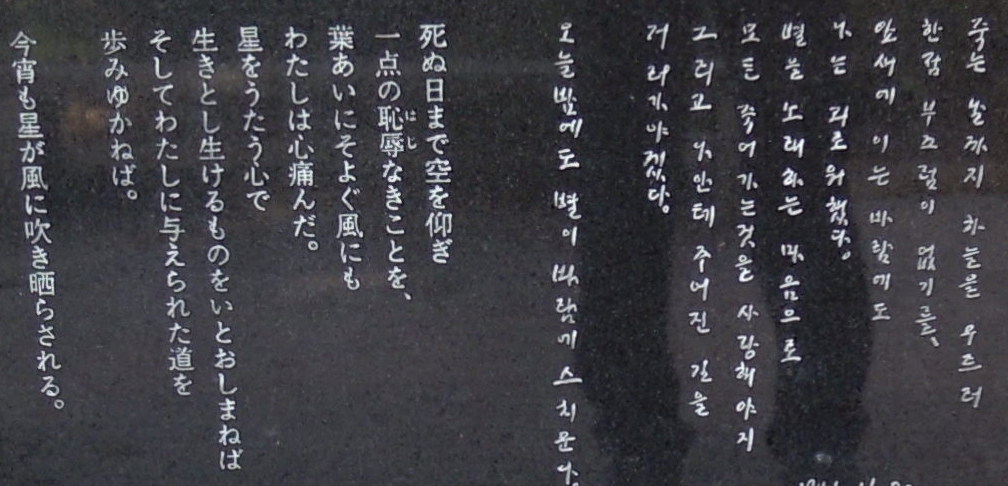 죽는 날까지 하늘을 우르러
한점 부끄럼이 없기를、
잎새에 이는 바람에도
나는 괴로워했다。
별을 노래하는 마음으로
모든 죽어가는것을 사랑해야지
그리고 나안테 주어진 길을
거러가야겠다。
오늘밤에도 별이 바람에 스치운다。
死ぬ日まで空を仰ぎ
一点の恥辱(はじ)なきことを、
葉あいにそよぐ風にも
わたしは心痛んだ。
星をうたう心で
生きとし生けるものをいとおしまねば
そしてわたしに与えられた道を
歩みゆかねば。
今宵も星が風に吹き晒らされる。